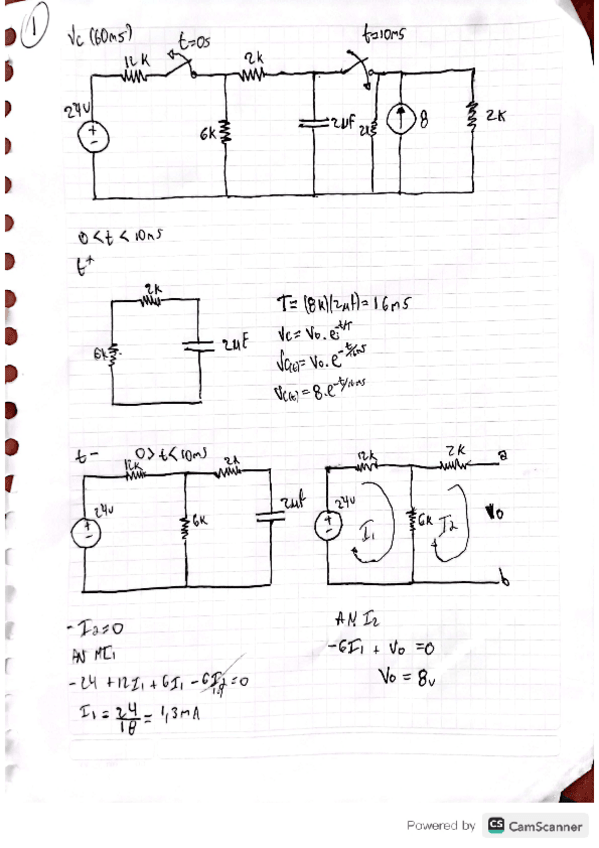 1
Vc (60ms)
t=0s
t=10ms
12K
2K
24V
6K
2µF
2K
8
2K
0<t<10ms
t+
2K
6K
2µF
T= (8K)(2µf)= 16ms
Vc= Vo.e-t/T
Vc(t)= Vo.e-t/16ms
Vc(t)=8.e-t/16ms
t-
0>t<10ms
12K
2K
24V
6K
2µf
12K
2K
a
24V
6K
I1
I2
Vo
b
-I2=0
AN MI1
-24 +12I1 +6I1 -6I2=0
I1= 24/18 = 1,3mA
AN I2
-6I1 + Vo =0
Vo = 8v
Powered by CS CamScanner